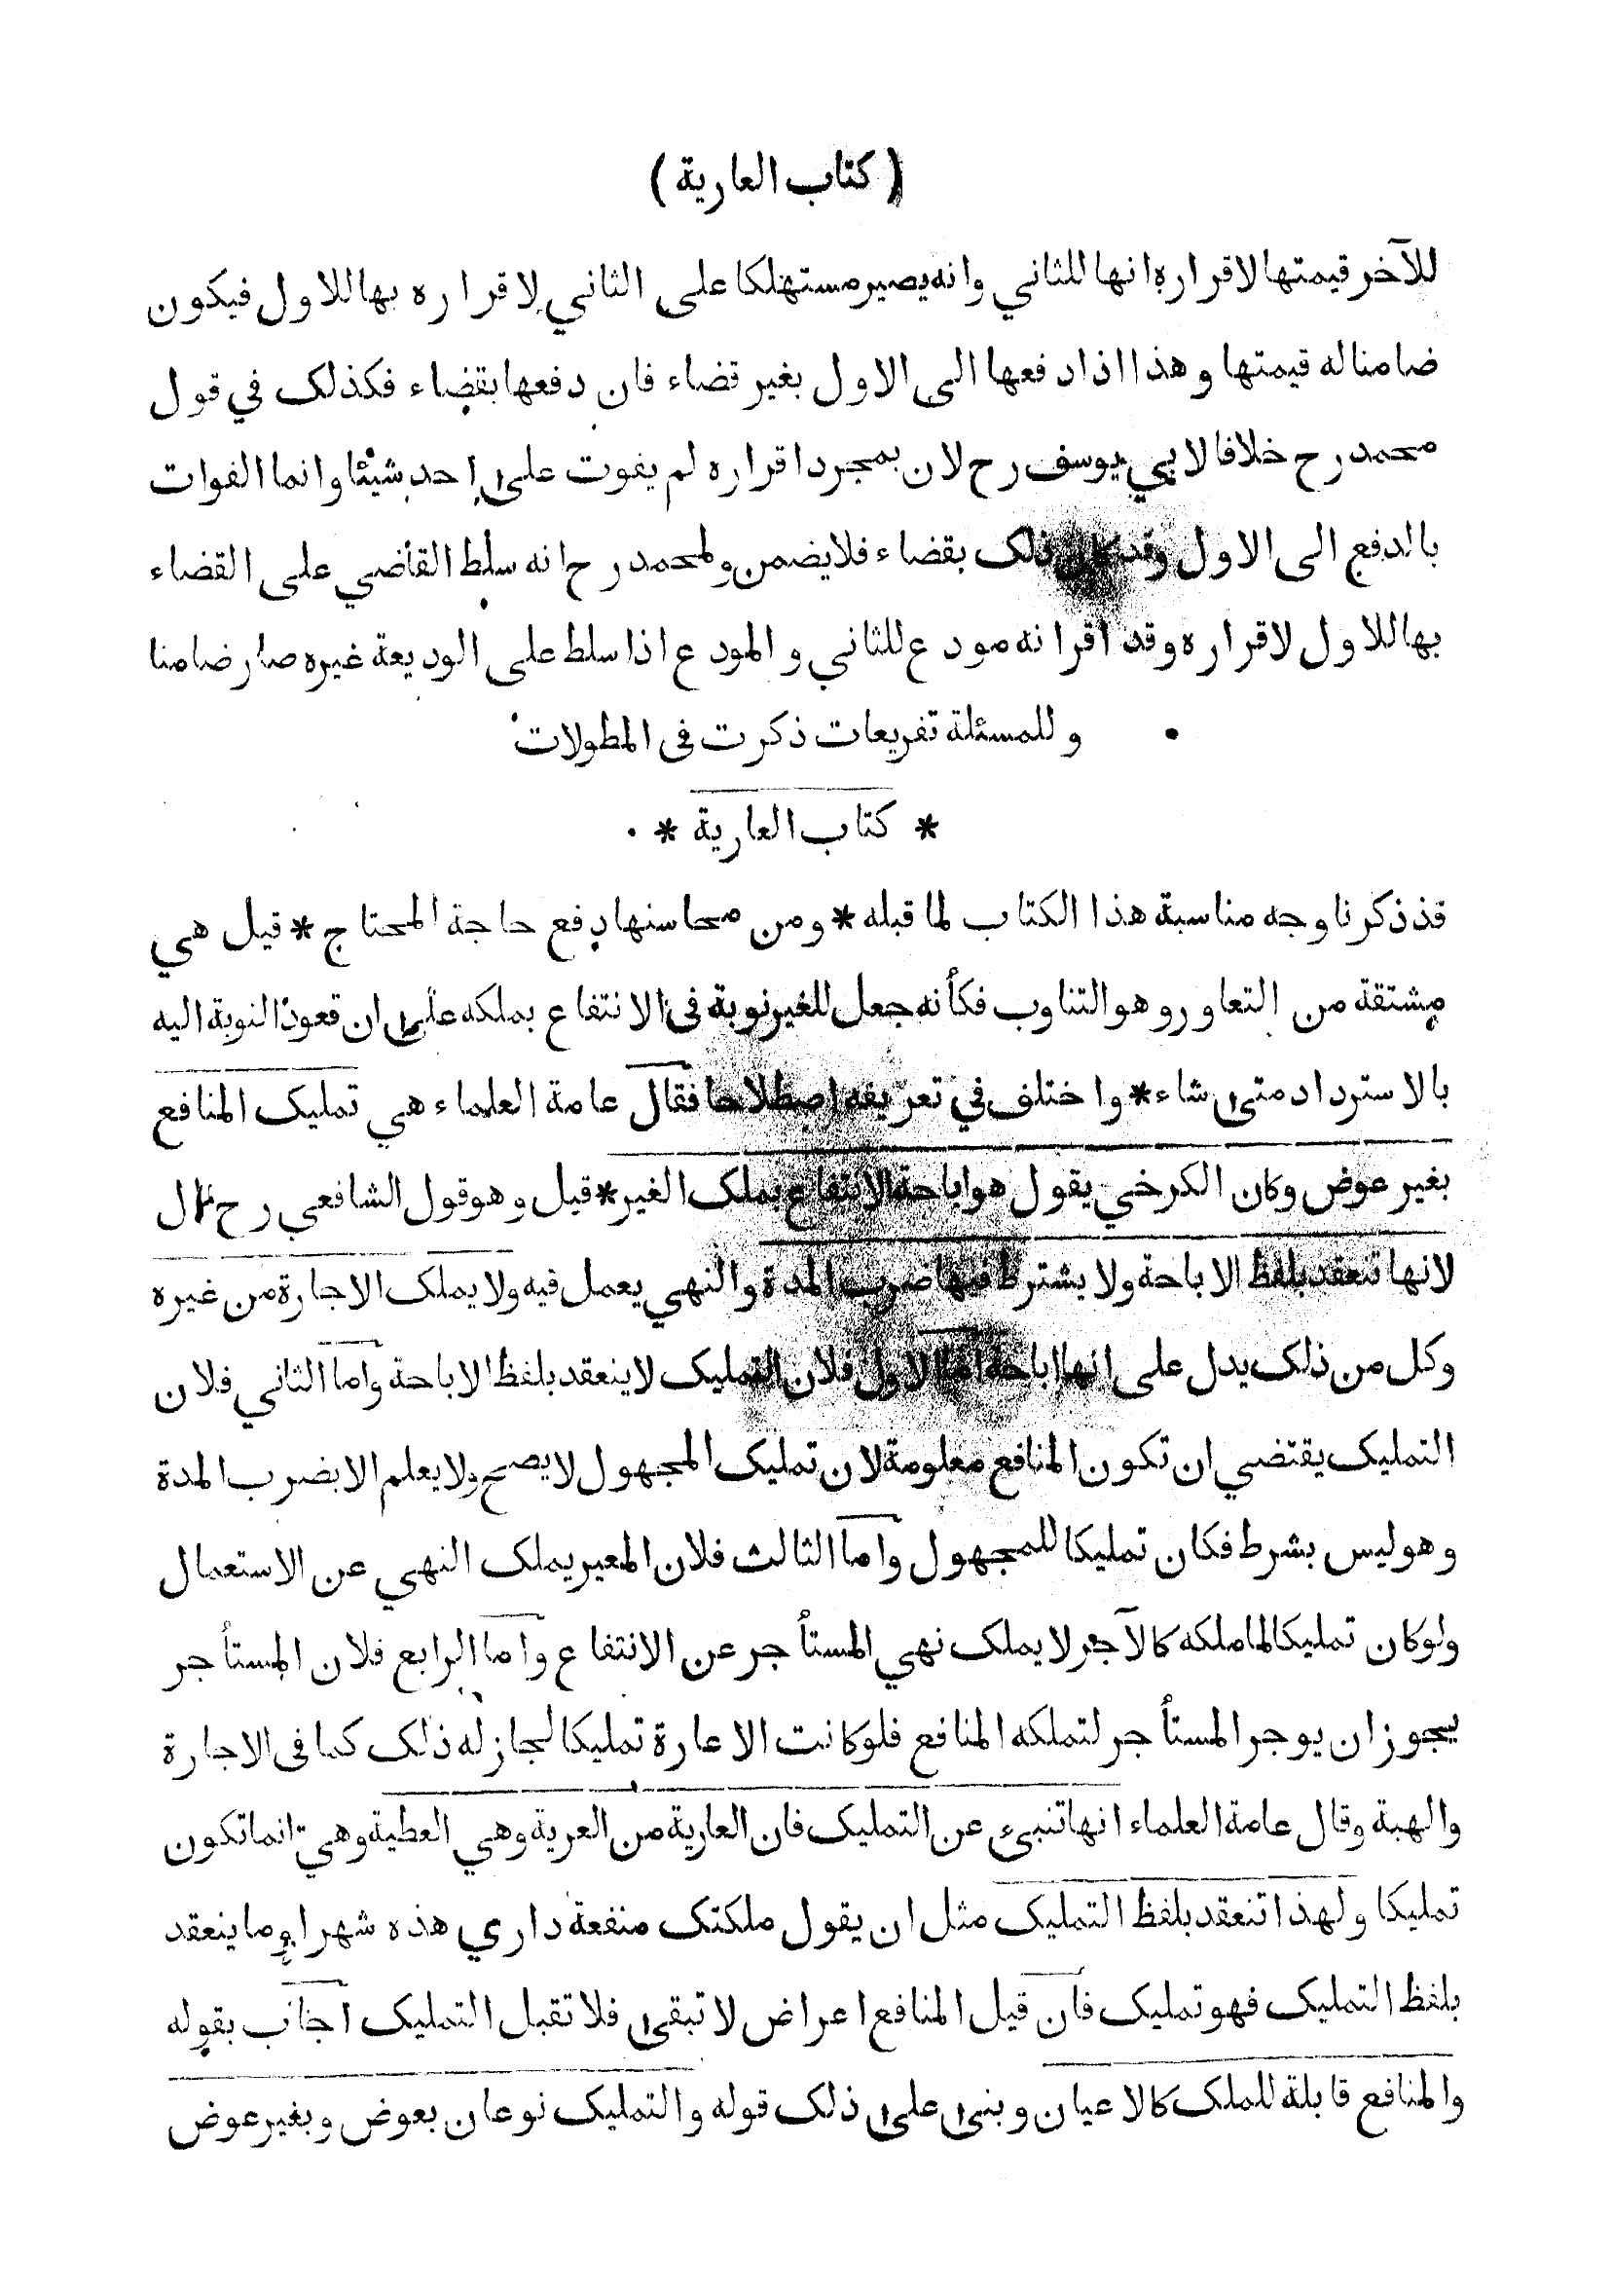 ( كتاب العارية )
للآخر قيمتها لاقراره انها للثاني وانه يصير مستهلكا على الثاني لاقراره بها للاول فيكون
ضامنا له قيمتها وهذا اذا دفعها الى الاول بغير قضاء فان دفعها بقضاء فكذلك في قول
محمد رح خلافا لابي يوسف رح لان بمجرد اقراره لم يفوت على احد شيئا وانما الفوات
بالدفع الى الاول وقد كان ذلك بقضاء فلا يضمن ولمحمد رح انه سلط القاضي على القضاء
بها للاول لاقراره وقد اقر انه مودع للثاني والمودع اذا سلط على الوديعة غيره صار ضامنا
وللمسئلة تفريعات ذكرت فى المطولات
* كتاب العارية *
قد ذكرنا وجه مناسبة هذا الكتاب لما قبله * ومن محاسنها دفع حاجة المحتاج * قيل هي
مشتقة من التعاور وهو التناوب فكأنه جعل للغير نوبة فى الانتفاع بملكه على ان تعود النوبة اليه
بالاسترداد متى شاء * واختلف في تعريفه اصطلاحا فقال عامة العلماء هي تمليك المنافع
بغير عوض وكان الكرخي يقول هو اباحة الانتفاع بملك الغير * قيل وهو قول الشافعي رح قال
لانها تنعقد بلفظ الاباحة ولا يشترط فيها ضرب المدة والنهي يعمل فيه ولا يملك الاجارة من غيره
وكل من ذلك يدل على انها اباحة اما الاول فلان التمليك لا ينعقد بلفظ الاباحة واما الثاني فلان
التمليك يقتضي ان تكون المنافع معلومة لان تمليك المجهول لا يصح ولا يعلم الا بضرب المدة
وهو ليس بشرط فكان تمليكا للمجهول واما الثالث فلان المعير يملك النهي عن الاستعمال
ولوكان تمليكا لما ملكه كالآجر لا يملك نهي المستأجر عن الانتفاع واما الرابع فلان المستأجر
يجوز ان يوجر المستأجر لتملكه المنافع فلو كانت الاعارة تمليكا لجاز له ذلك كما فى الاجارة
والهبة وقال عامة العلماء انها تنبىء عن التمليك فان العارية من العرية وهي العطية وهي انما تكون
تمليكا ولهذا تنعقد بلفظ التمليك مثل ان يقول ملكتك منفعة داري هذه شهرا وما ينعقد
بلفظ التمليك فهو تمليك فان قيل المنافع اعراض لا تبقى فلا تقبل التمليك اجاب بقوله
والمنافع قابلة للملك كالاعيان وبنى على ذلك قوله والتمليك نوعان بعوض وبغير عوض